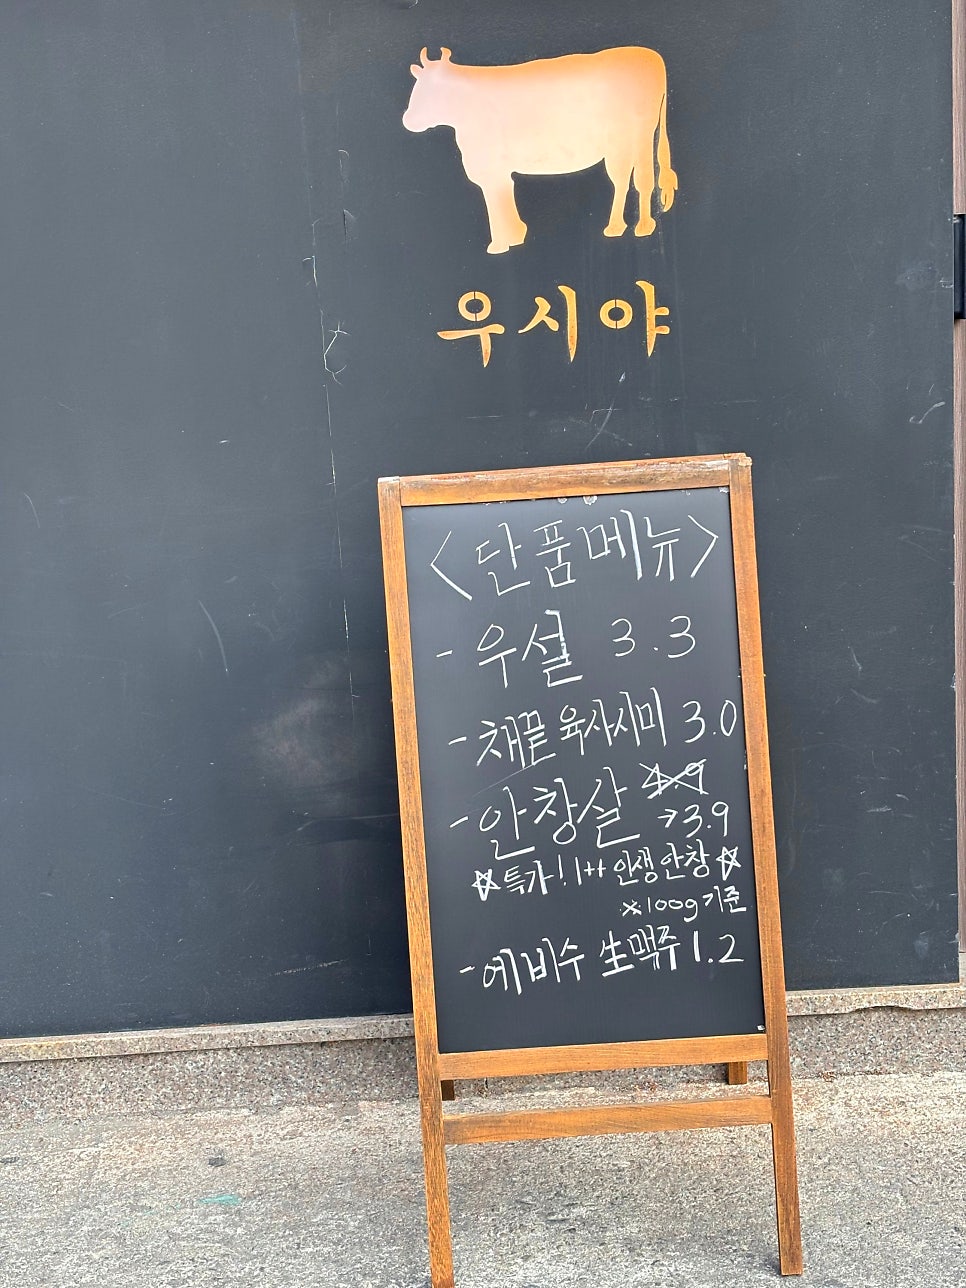 우시야
<단품메뉴>
- 우설 3.3
- 채끝 육사시미 3.0
- 안창살 4.9
→3.9
☆특가! 1++ 인생안창☆
※100g기준
- 에비수 生맥주 1.2